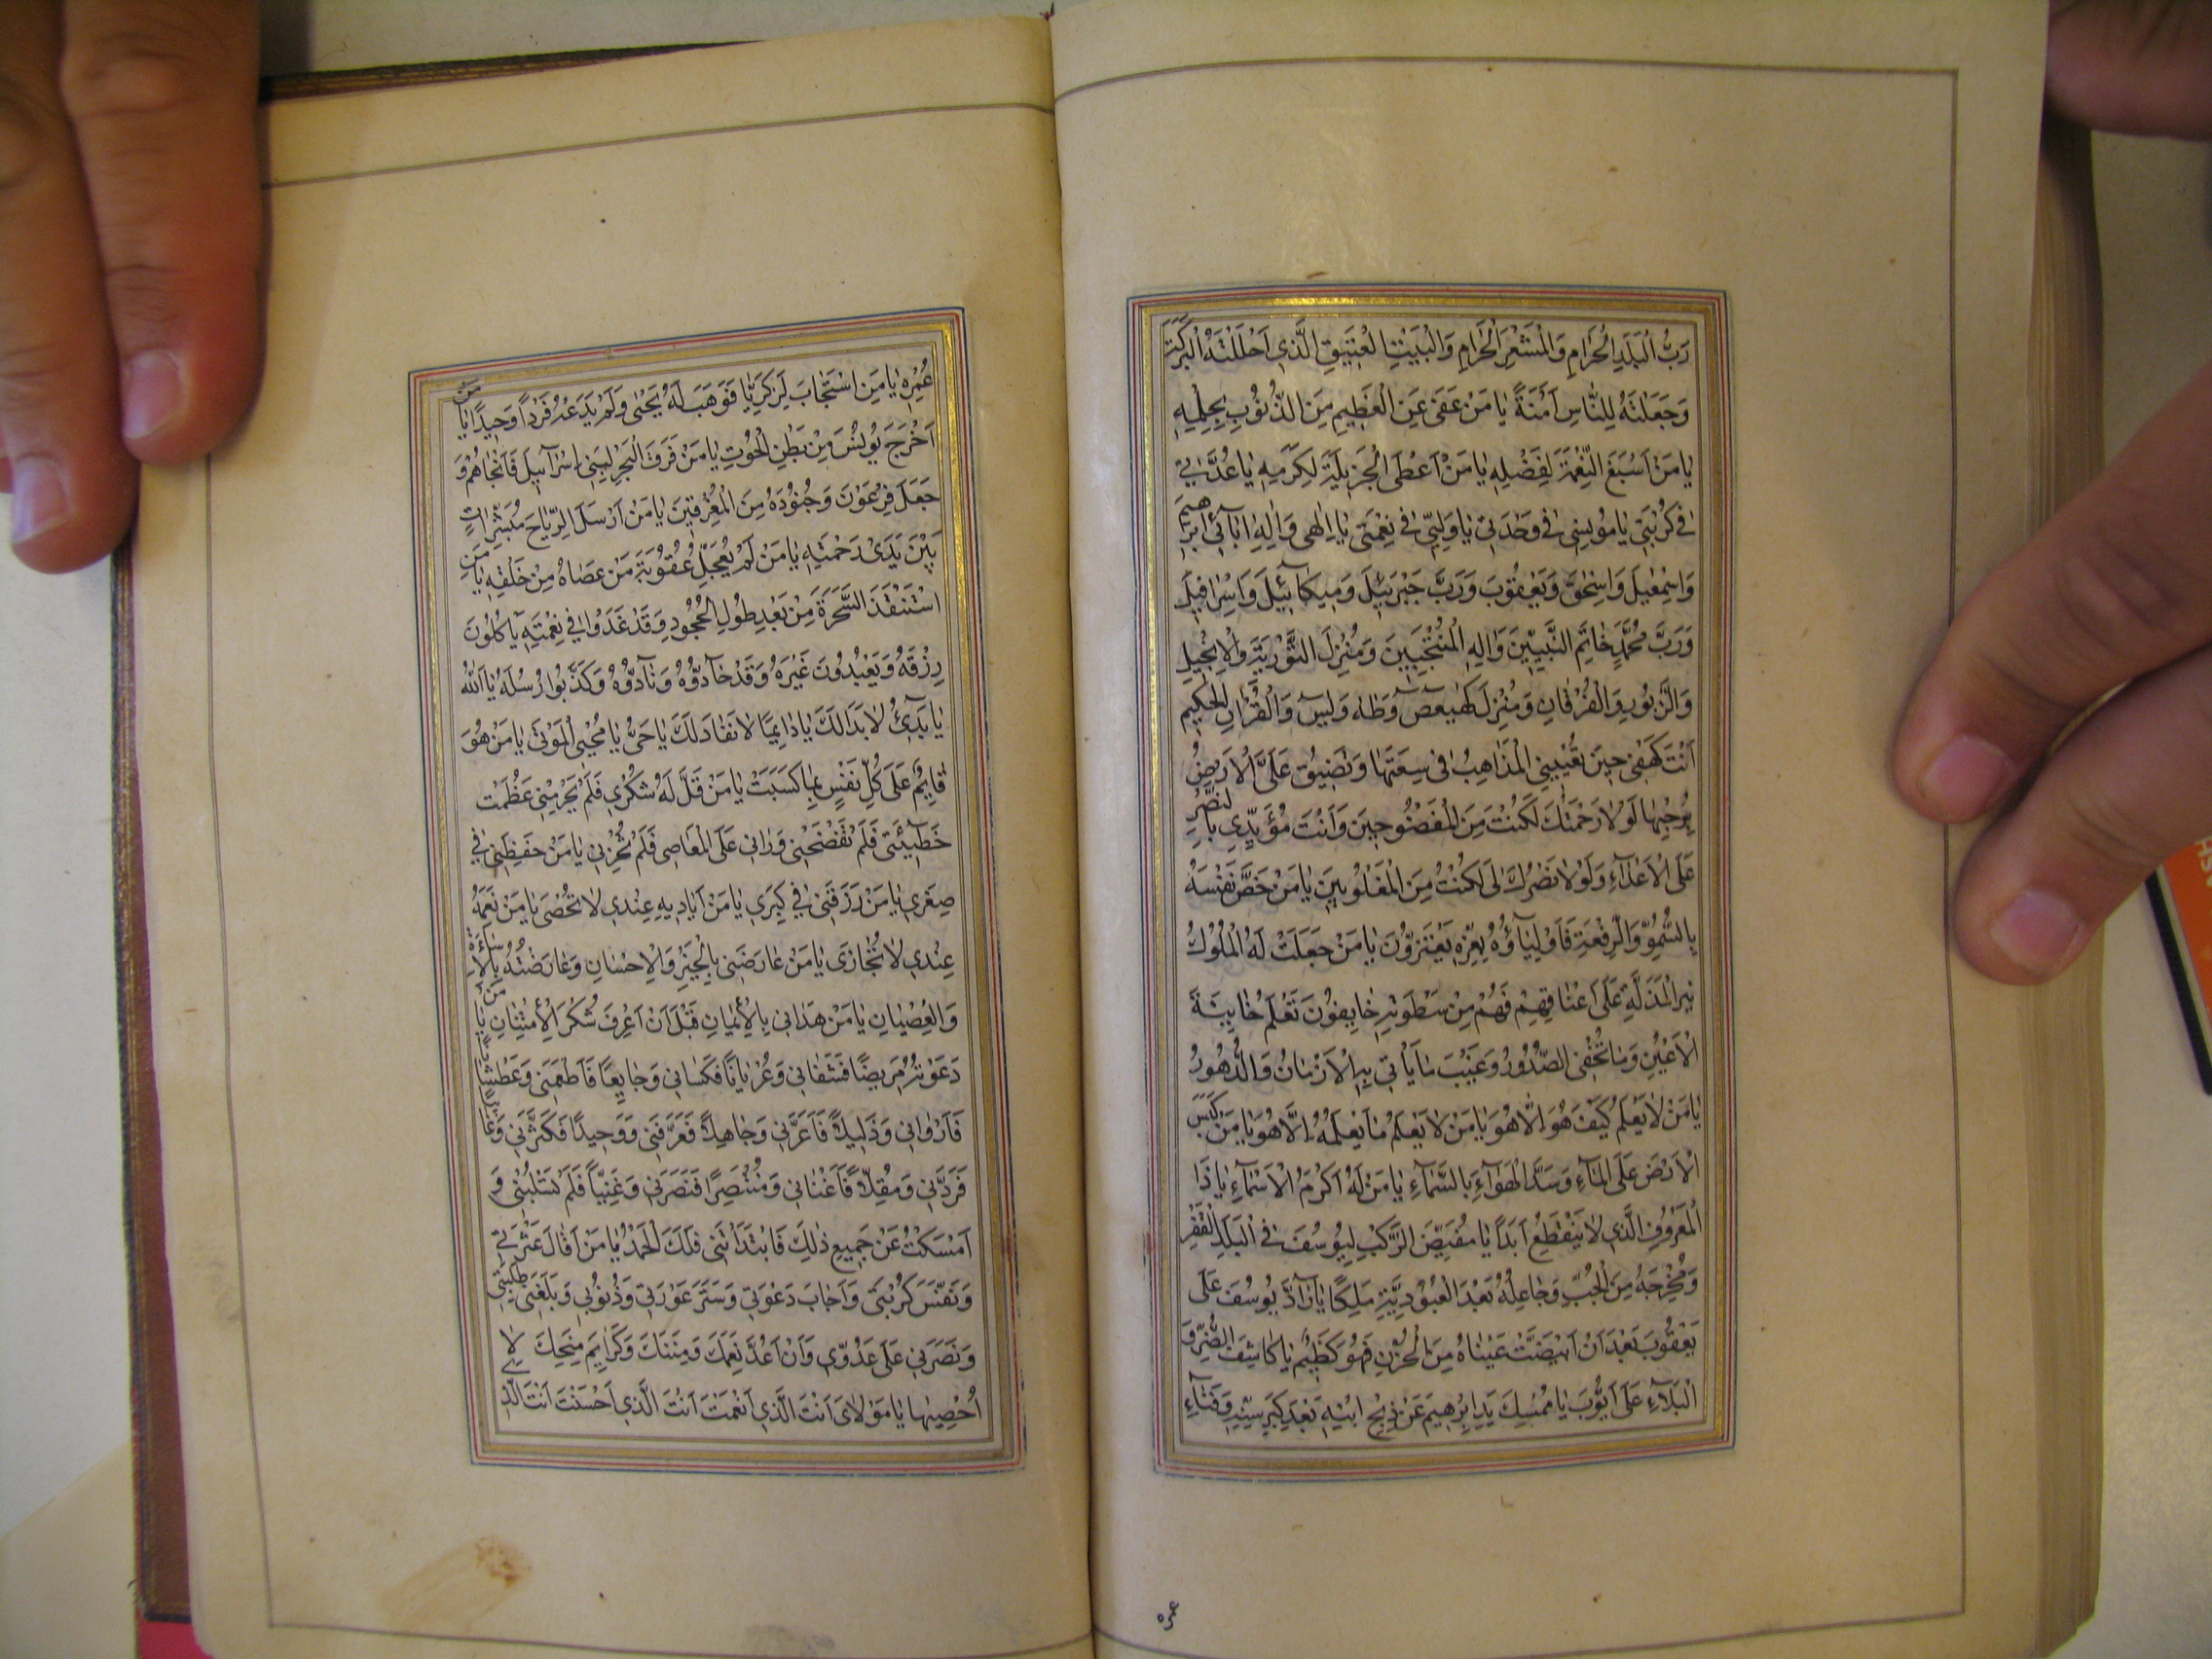 رَبَّ الْبَلَدِ الْحَرَامِ وَالْمَشْعَرِ الْحَرَامِ وَالْبَيْتِ الْعَتِيقِ الَّذِي اَحْلَلْتَهُ الْبَرَكَةَ
وَجَعَلْتَهُ لِلنَّاسِ اَمَنَةً يَا مَنْ عَفَى عَنِ الْعَظِيمِ مِنَ الذُّنُوبِ بِحِلْمِهِ
يَا مَنْ اَسْبَغَ النِّعْمَةَ بِفَضْلِهِ يَا مَنْ اَعْطَى الْجَزِيلَةَ بِكَرَمِهِ يَا عُدَّتِي
فِي كُرْبَتِي يَا مُونِسِي فِي وَحْدَتِي يَا وَلِيِّي فِي نِعْمَتِي يَا اِلٰهِي وَاِلٰهِ اٰبَائِي اِبْرٰهِيمَ
وَاِسْمٰعِيلَ وَاِسْحٰقَ وَيَعْقُوبَ وَرَبَّ جَبْرَئِيلَ وَمِيكَائِيلَ وَاِسْرَافِيلَ
وَرَبَّ مُحَمَّدٍ خَاتِمِ النَّبِيِّينَ وَاٰلِهِ الْمُنْتَجَبِينَ وَمُنْزِلَ التَّوْرٰيةِ وَالْاِنْجِيلِ
وَالزَّبُورِ وَالْفُرْقَانِ وَمُنْزِلَ كٓهٰيٰعٓصٓ وَطٰهٰ وَيٰسٓ وَالْقُرْاٰنِ الْحَكِيمِ
اَنْتَ كَهْفِي حِينَ تُعْيِينِي الْمَذَاهِبُ فِي سِعَتِهَا وَتَضِيقُ عَلَيَّ الْاَرْضُ
بِرُحْبِهَا لَوْلَا رَحْمَتُكَ لَكُنْتُ مِنَ الْمَفْضُوحِينَ وَاَنْتَ مُؤَيِّدِي بِالنَّصْرِ
عَلَى الْاَعْدَاءِ وَلَوْلَا نَصْرُكَ لِي لَكُنْتُ مِنَ الْمَغْلُوبِينَ يَا مَنْ خَصَّ نَفْسَهُ
بِالسُّمُوِّ وَالرِّفْعَةِ فَاَوْلِيَاؤُهُ بِعِزِّهِ يَعْتَزُّونَ يَا مَنْ جَعَلَتْ لَهُ الْمُلُوكُ
نِيرَ الْمَذَلَّةِ عَلَى اَعْنَاقِهِمْ فَهُمْ مِنْ سَطَوَتِهِ خَائِفُونَ تَعْلَمُ خَائِنَةَ
الْاَعْيُنِ وَمَا تُخْفِي الصُّدُورُ وَغَيْبَ مَا يَاْتِي بِهِ الْاَزْمَانُ وَالدُّهُورُ
يَا مَنْ لَا يَعْلَمُ كَيْفَ هُوَ اِلَّا هُوَ يَا مَنْ لَا يَعْلَمُ مَا يَعْلَمُهُ اِلَّا هُوَ يَا مَنْ كَبَسَ
الْاَرْضَ عَلَى الْمَاءِ وَسَدَّ الْهَوَاءَ بِالسَّمَاءِ يَا مَنْ لَهُ اَكْرَمُ الْاَسْمَاءِ يَا ذَا
الْمَعْرُوفِ الَّذِي لَا يَنْقَطِعُ اَبَدًا يَا مُقَيِّضَ الرَّكْبِ لِيُوسُفَ فِي الْبَلَدِ الْقَفْرِ
وَمُخْرِجَهُ مِنَ الْجُبِّ وَجَاعِلَهُ بَعْدَ الْعُبُودِيَّةِ مَلِكًا يَا رَادَّ يُوسُفَ عَلَى
يَعْقُوبَ بَعْدَ اَنْ ابْيَضَّتْ عَيْنَاهُ مِنَ الْحُزْنِ فَهُوَ كَظِيمٌ يَا كَاشِفَ الضُّرِّ وَ
الْبَلَاءِ عَلَى اَيُّوبَ يَا مُمْسِكَ يَدِ اِبْرٰهِيمَ عَنْ ذِبْحِ ابْنِهِ بَعْدَ كِبَرِ سِنِّهِ وَفَنَاءِ
عمره
عُمُرِهِ يَا مَنِ اسْتَجَابَ لِزَكَرِيَّا فَوَهَبَ لَهُ يَحْيٰى وَلَمْ يَدَعْهُ فَرْدًا وَحِيدًا يَا مَنْ
اَخْرَجَ يُونُسَ مِنْ بَطْنِ الْحُوتِ يَا مَنْ فَرَقَ الْبَحْرَ لِبَنِي اِسْرَآئِيلَ فَاَنْجَاهُمْ وَ
جَعَلَ فِرْعَوْنَ وَجُنُودَهُ مِنَ الْمُغْرَقِينَ يَا مَنْ اَرْسَلَ الرِّيَاحَ مُبَشِّرَاتٍ
بَيْنَ يَدَيْ رَحْمَتِهِ يَا مَنْ لَمْ يُعَجِّلْ عُقُوبَةَ مَنْ عَصَاهُ مِنْ خَلْقِهِ يَا مَنِ
اسْتَنْقَذَ السَّحَرَةَ مِنْ بَعْدِ طُولِ الْجُحُودِ وَقَدْ غَدَوْا فِي نِعْمَتِهِ يَاْكُلُونَ
رِزْقَهُ وَيَعْبُدُونَ غَيْرَهُ وَقَدْ حَادُّوهُ وَنَادُّوهُ وَكَذَّبُوا رُسُلَهُ يَا اَللّٰهُ
يَا بَدِئُ لَا بَدَالَكَ يَا دَائِمًا لَا نَفَادَ لَكَ يَا حَيُّ يَا مُحْيِيَ الْمَوْتٰى يَا مَنْ هُوَ
قَائِمٌ عَلَى كُلِّ نَفْسٍ بِمَا كَسَبَتْ يَا مَنْ قَلَّ لَهُ شُكْرِي فَلَمْ يَحْرِمْنِي عَظُمَتْ
خَطِيئَتِي فَلَمْ تَفْضَحْنِي وَرَانِي عَلَى الْمَعَاصِي فَلَمْ يُخْزِنِي يَا مَنْ حَفِظَنِي فِي
صِغَرِي يَا مَنْ رَزَقَنِي فِي كِبَرِي يَا مَنْ اَيَادِيهِ عِنْدِي لَا تُحْصٰى يَا مَنْ نِعَمُهُ
عِنْدِي لَا تُجَازٰى يَا مَنْ عَارَضَنِي بِالْخَيْرِ وَالْاِحْسَانِ وَعَارَضْتُهُ بِالْاِسَاءَةِ
وَالْعِصْيَانِ يَا مَنْ هَدَانِي بِالْاِيمَانِ قَبْلَ اَنْ اَعْرِفَ شُكْرَ الْاِمْتِنَانِ يَا مَنْ
دَعَوْتُهُ مَرِيضًا فَشَفَانِي وَعُرْيَانًا فَكَسَانِي وَجَائِعًا فَاَطْعَمَنِي وَعَطْشَانًا
فَاَرْوَانِي وَذَلِيلًا فَاَعَزَّنِي وَجَاهِلًا فَعَرَّفَنِي وَوَحِيدًا فَكَثَّرَنِي وَغَائِبًا
فَرَدَّنِي وَمُقِلًّا فَاَغْنَانِي وَمُنْتَصِرًا فَنَصَرَنِي وَغَنِيًّا فَلَمْ يَسْلُبْنِي وَ
اَمْسَكْتُ عَنْ جَمِيعِ ذٰلِكَ فَابْتَدَأَنِي فَلَكَ الْحَمْدُ يَا مَنْ اَقَالَ عَثْرَتِي
وَنَفَّسَ كُرْبَتِي وَاَجَابَ دَعْوَتِي وَسَتَرَ عَوْرَتِي وَذُنُوبِي وَبَلَّغَنِي طَلِبَتِي
وَنَصَرَنِي عَلَى عَدُوِّي وَاِنْ اَعُدَّ نِعَمَكَ وَمِنَنَكَ وَكَرَائِمَ مِنَحِكَ لَا
اُحْصِيهَا يَا مَوْلَايَ اَنْتَ الَّذِي اَنْعَمْتَ اَنْتَ الَّذِي اَحْسَنْتَ اَنْتَ الَّذِي